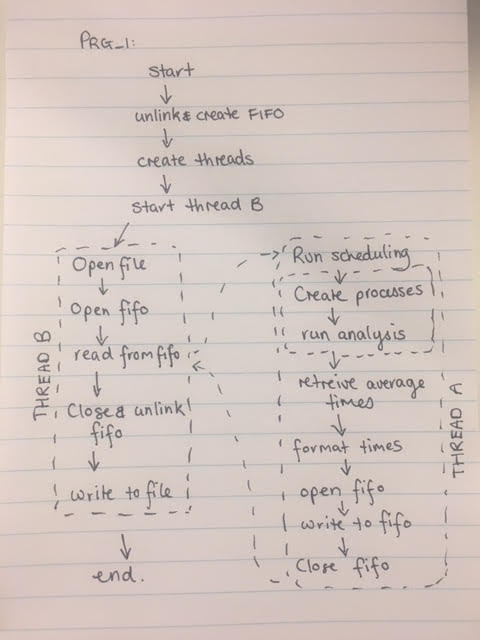 PRG_1:
Start
unlink & create FIFO
create threads
start thread B
THREAD B
Open file
Open fifo
read from fifo
Close & unlink
fifo
write to file
end.
THREAD A
Run scheduling
Create processes
run analysis
retreive average
times
format times
open fifo
write to fifo
Close fifo